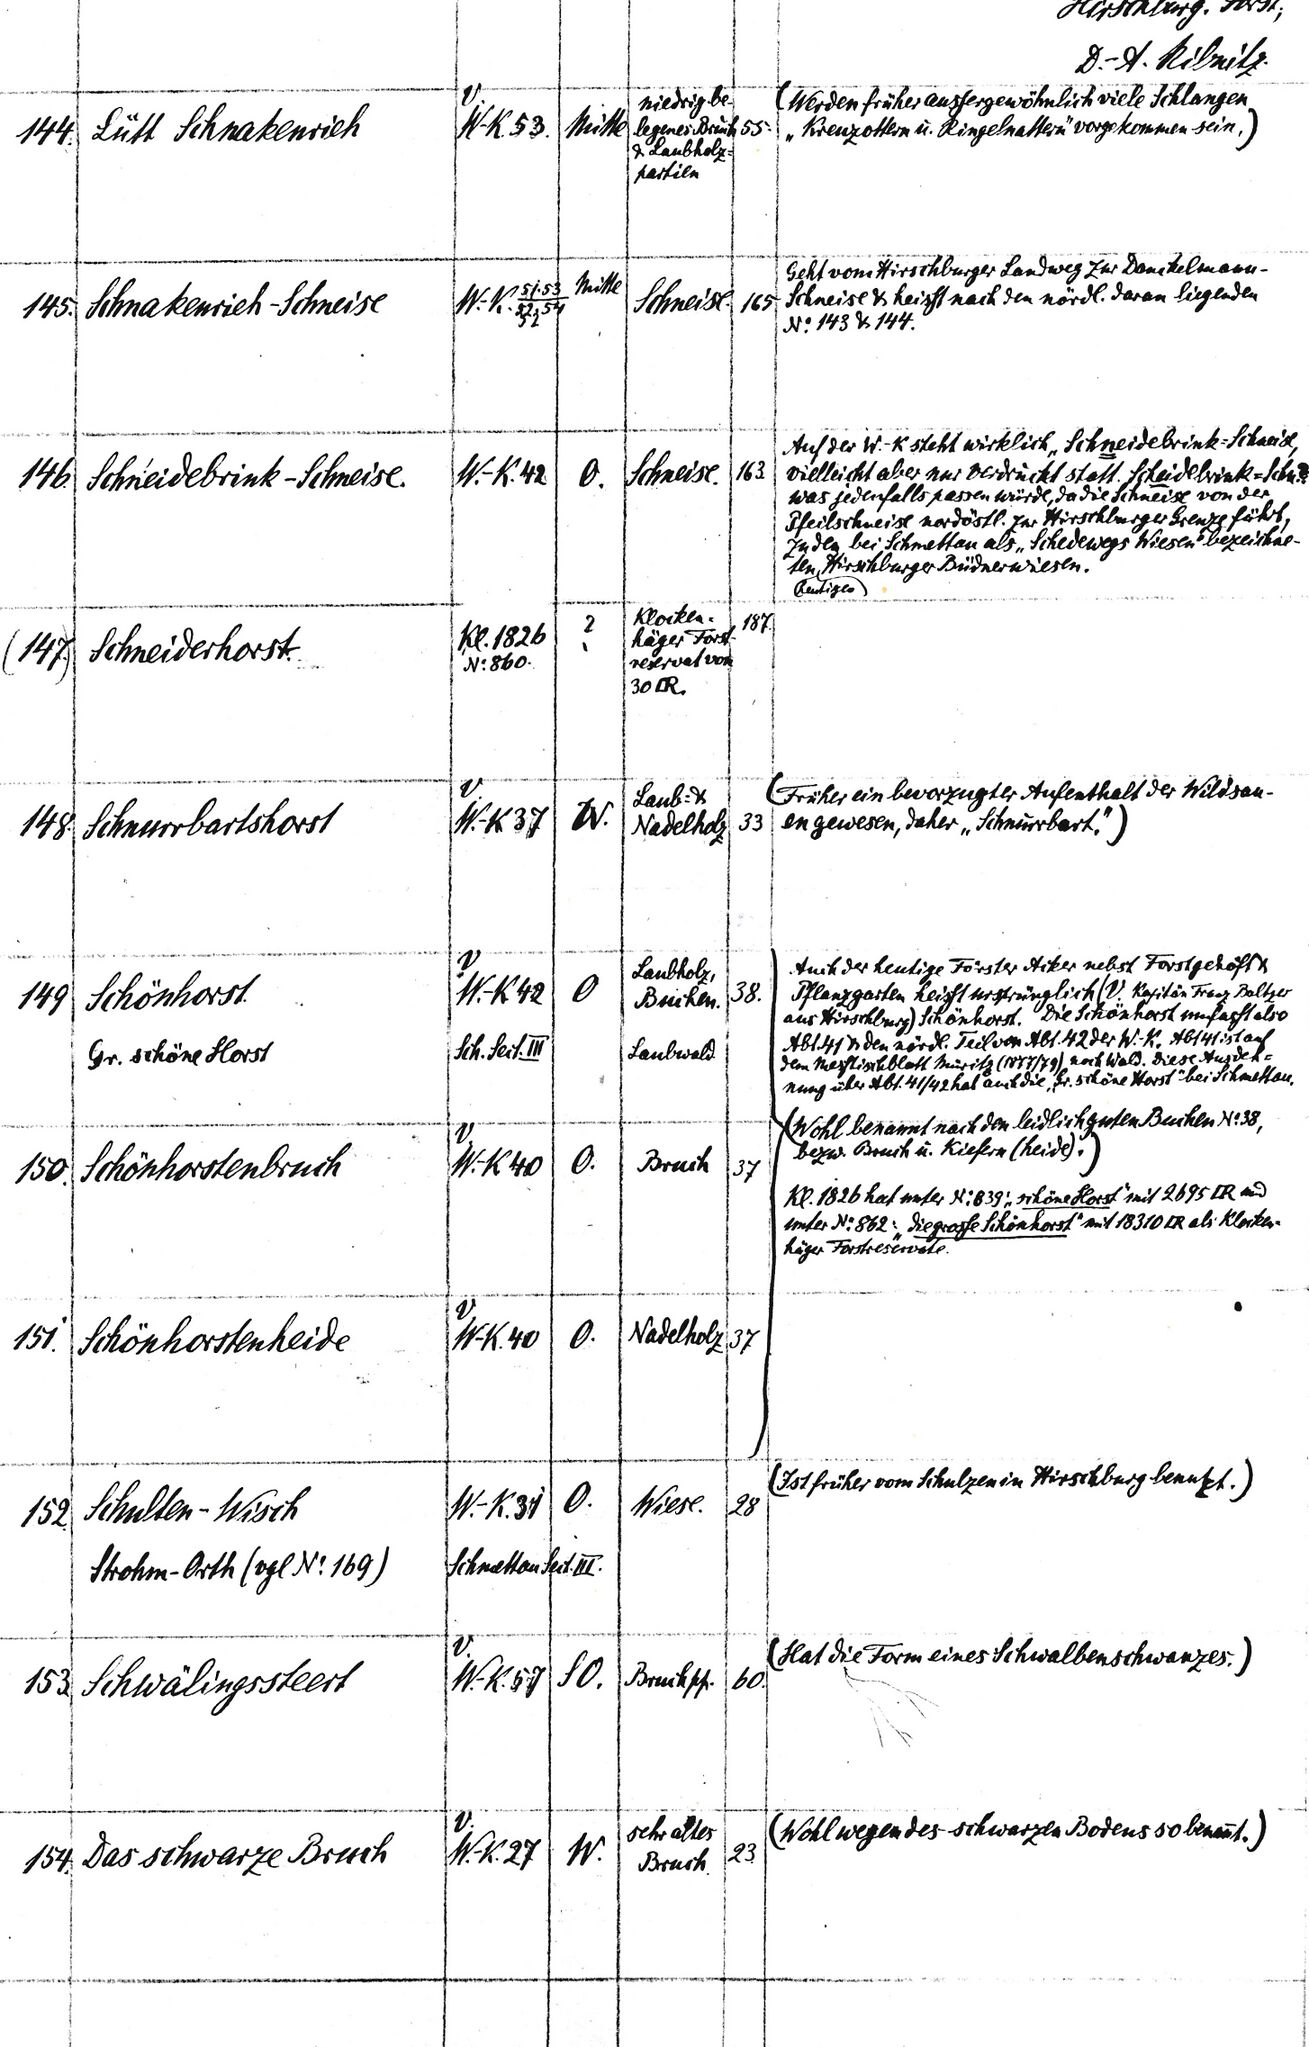 Hirschburg. Forst,
D.-A. Ribnitz.
144. Lütt Schnakenrieh
V.
W.-K. 53.
Mitte
niedrig be-
legenes Bruch
& Laubholz=
partien
55.
(Werden früher aussergewöhnlich viele Schlangen
„Kreuzottern u. Ringelnattern" vorgekommen sein.)
145. Schnakenrieh-Schneise
W.-K. 51.53
52.54
Mitte
Schneise.
165
Geht vom Hirschburger Landweg zur Danckelmann-
Schneise & heisst nach den nördl. daran liegenden
No. 143 & 144.
146. Schneidebrink-Schneise.
W.-K. 42
O.
Schneise.
163
Auf der W.-K steht wirklich „Schneidebrink=Schneise,
vielleicht aber nur verdruckt statt. Scheidebrink=Schn.
was jedenfalls passen würde, da die Schneise von der
Pfeilschneise nordöstl. zur Hirschburger Grenze führt,
zu den bei Schmettau als „Schedewegs Wiesen" bezeichne-
ten Hirschburger Büdnerwiesen.
(heutigen)
(147.) Schneiderhorst.
Kl. 1826
No. 860.
?
Klocken-
häger Forst
reservat von
30 □R.
187
148. Schnurrbartshorst
V.
W.-K 37
W.
Laub=&
Nadelholz
33
(Früher ein bevorzugter Aufenthalt der Wildsau-
en gewesen, daher „Schnurrbart.")
149 Schönhorst.
V.
W.-K 42
O
Laubholz,
Buchen.
38.
Auch der heutige Förster Acker nebst Forstgehöft &
Pflanzgarten heisst ursprünglich (V. Kapitän Franz Baltzer
aus Hirschburg) Schönhorst. Die Schönhorst umfasst also
Gr. schöne Horst
Sch. Sect. III
Laubwald
Abt. 41 & den nördl. Teil von Abt. 42 der W.-K. Abt 41 ist auf
dem Messtischblatt Müritz (1877/79) noch Wald. Diese Ausdeh=
nung über Abt. 41/42 hat auch die „Gr. schöne Horst" bei Schmettau.
150. Schönhorstenbruch
V.
W.-K 40
O.
Bruch
37
(Wohl benannt nach den leidlich guten Buchen No. 38,
bezw. Bruch u. Kiefern (heide).)
Kl. 1826 hat unter No. 839: „schöne Horst" mit 2695 □R und
unter No. 862: „die grosse Schönhorst" mit 18310 □R als Klocken-
häger Forstreservate.
151. Schönhorstenheide
V
W-K. 40
O.
Nadelholz
37
152. Schulten-Wisch
W.-K. 31
O.
Wiese.
28
(Ist früher vom Schulzen in Hirschburg benutzt.)
Strohm-Orth (vgl No. 169)
Schmettau Sect. III.
153. Schwälingssteert
V.
W.-K. 57
SO.
Bruch pp.
60.
(Hat die Form eines Schwalbenschwanzes.)
154. Das schwarze Bruch
V.
W.-K. 27
W.
sehr altes
Bruch.
23.
(Wohl wegen des schwarzen Bodens so benannt.)